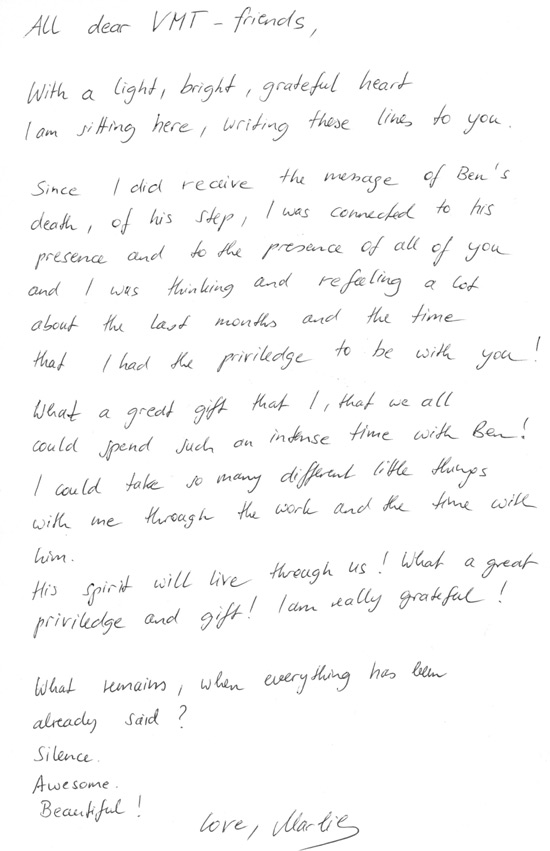 All dear VMT - friends,
With a light, bright, grateful heart
I am sitting here, writing these lines to you.
Since I did receive the message of Ben's
death, of his step, I was connected to his
presence and to the presence of all of you
and I was thinking and refeeling a lot
about the last months and the time
that I had the priviledge to be with you!
What a great gift that I, that we all
could spend such an intense time with Ben!
I could take so many different little things
with me through the work and the time with
him.
His spirit will live through us! What a great
priviledge and gift! I am really grateful!
What remains, when everything has been
already said?
Silence.
Awesome.
Beautiful!
Love, Marlies